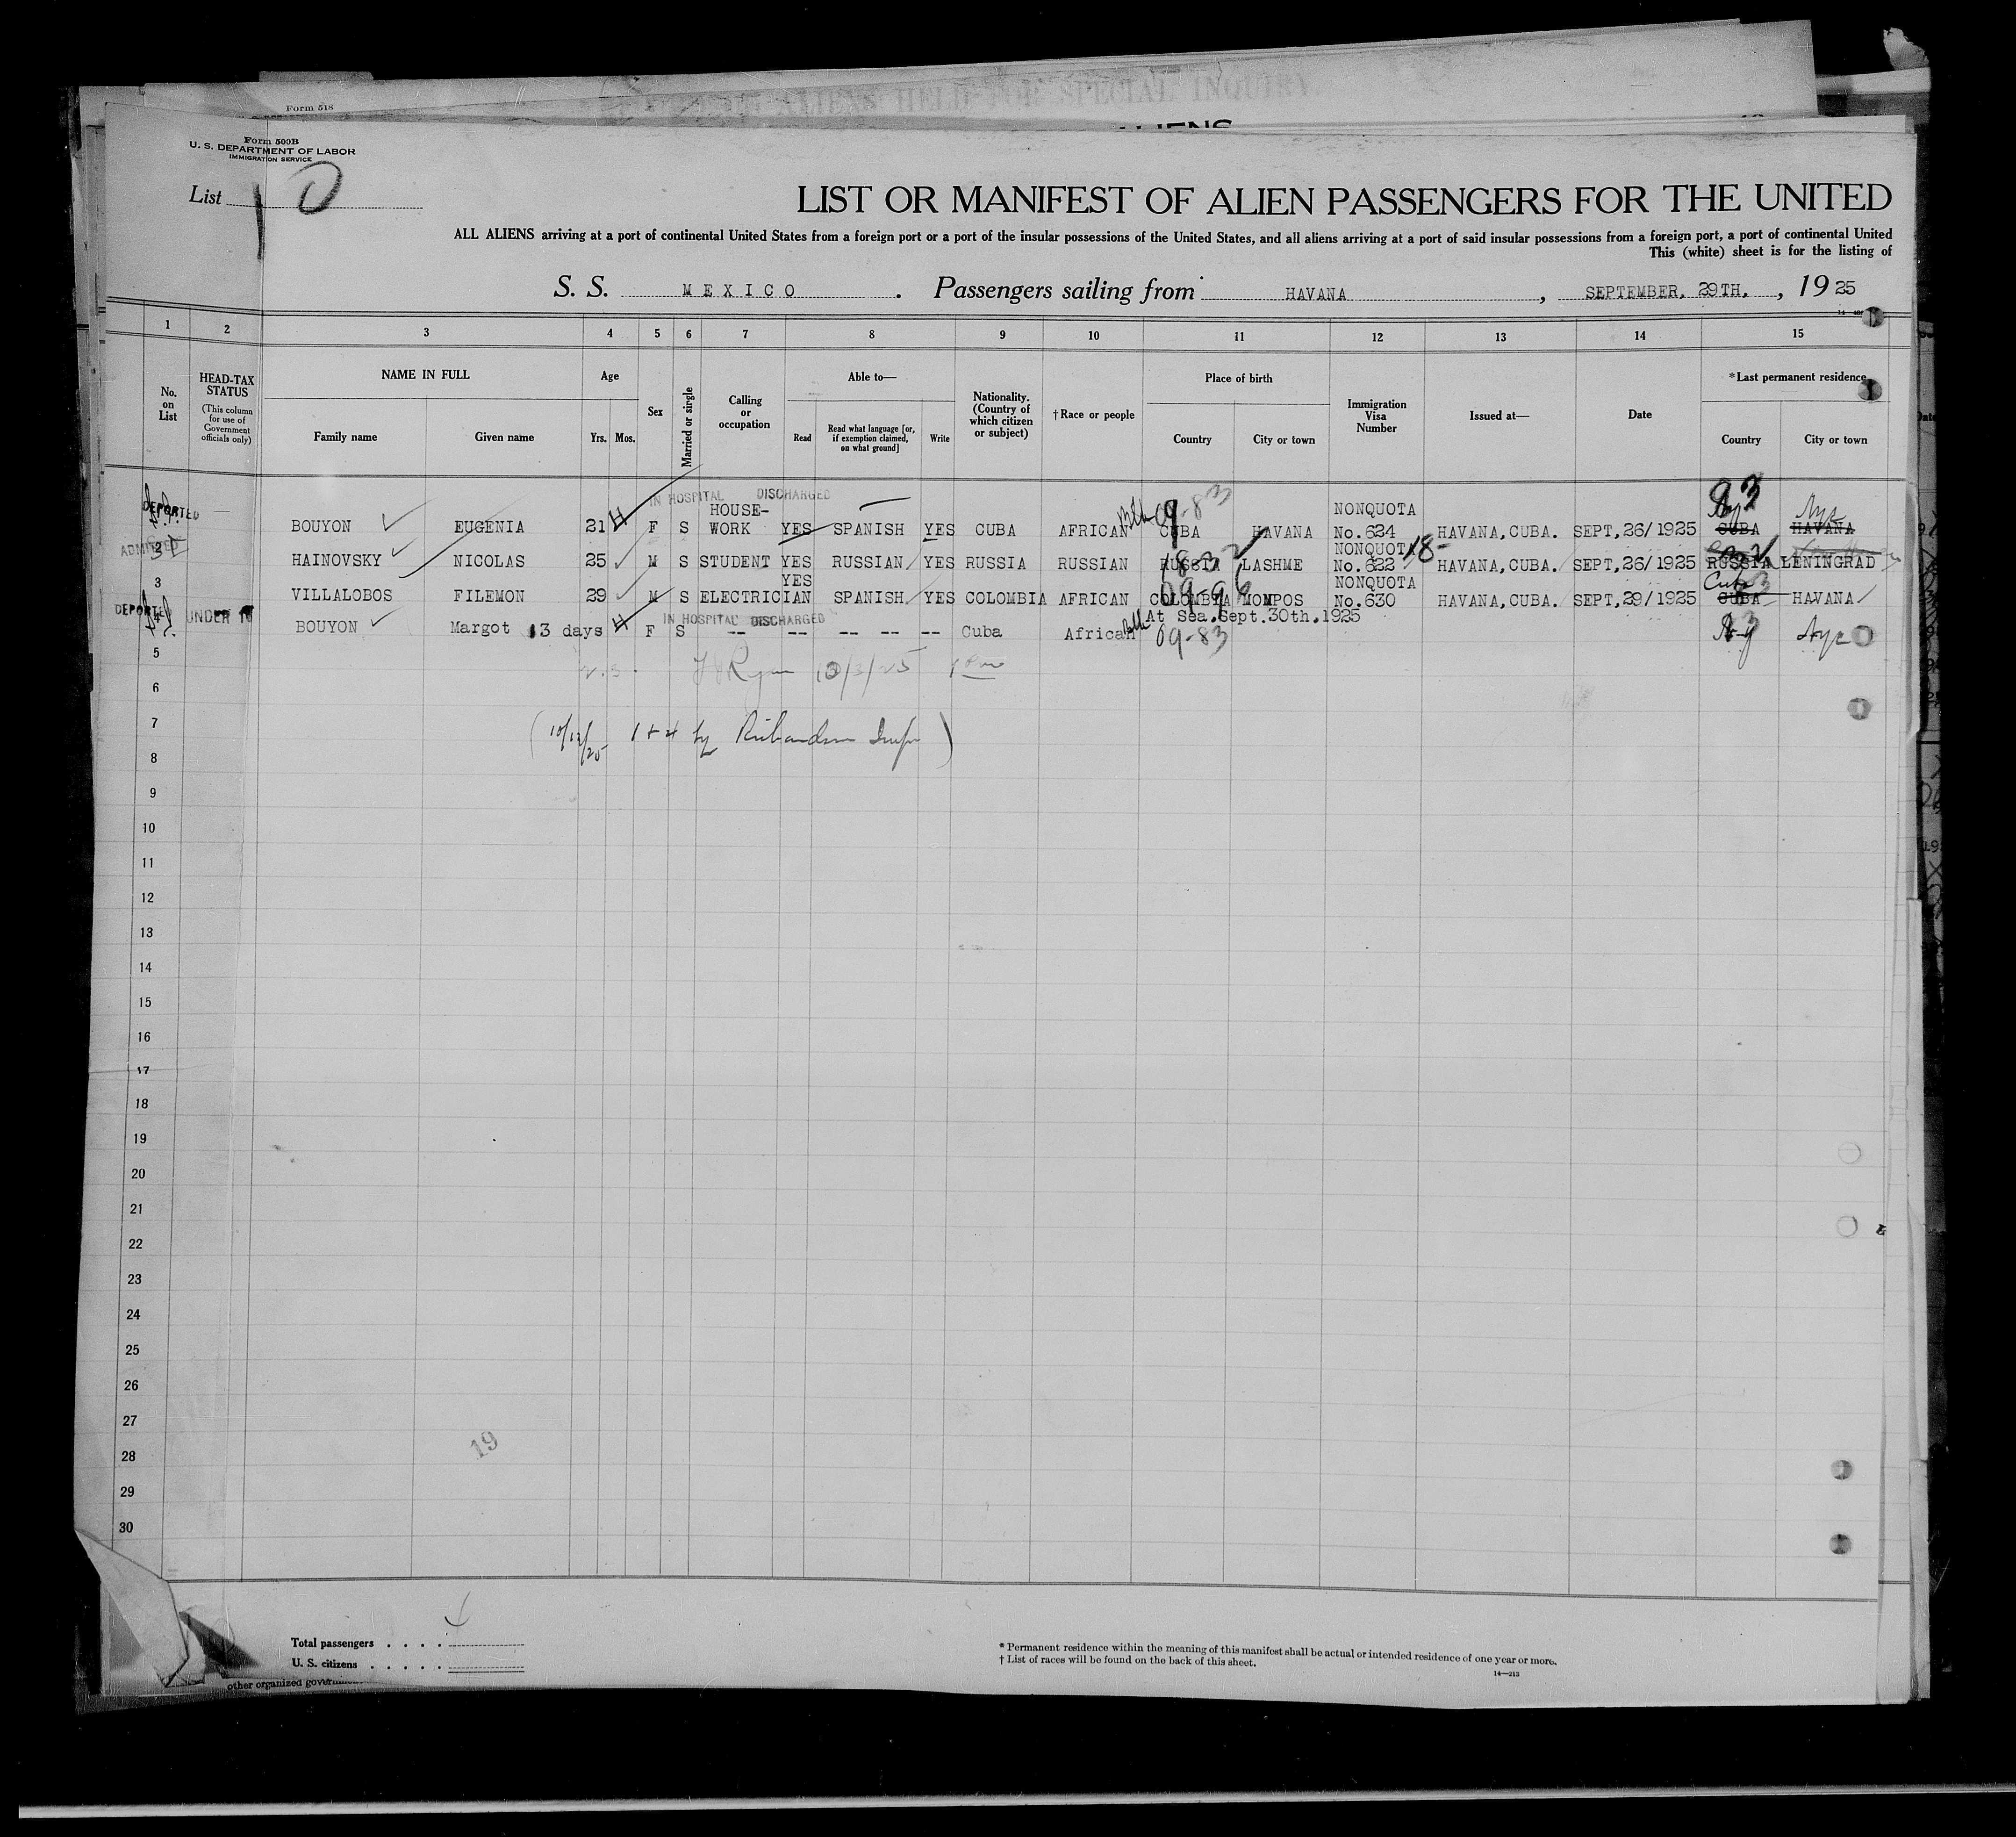 Form 518
ALIENS HELD FOR SPECIAL INQUIRY
ALIENS
Form 500B
U. S. DEPARTMENT OF LABOR
IMMIGRATION SERVICE
List
LIST OR MANIFEST OF ALIEN PASSENGERS FOR THE UNITED
ALL ALIENS arriving at a port of continental United States from a foreign port or a port of the insular possessions of the United States, and all aliens arriving at a port of said insular possessions from a foreign port, a port of continental United
This (white) sheet is for the listing of
S. S. MEXICO. Passengers sailing from HAVANA, SEPTEMBER, 29TH., 1925
1 2 3 4 5 6 7 8 9 10 11 12 13 14 15
No. on List
HEAD-TAX STATUS (This column for use of Government officials only)
NAME IN FULL
Family name Given name
Age
Yrs. Mos.
Sex
Married or single
Calling or occupation
Able to—
Read
Read what language [or, if exemption claimed, on what ground]
Write
Nationality. (Country of which citizen or subject)
†Race or people
Place of birth
Country City or town
Immigration Visa Number
Issued at—
Date
*Last permanent residence
Country City or town
IN HOSPITAL DISCHARGED
DEPORTED BOUYON EUGENIA 21 F S HOUSE-WORK YES SPANISH YES CUBA AFRICAN CUBA HAVANA NONQUOTA No.624 HAVANA,CUBA. SEPT,26/1925 CUBA HAVANA
09-83
ADMITTED 2 HAINOVSKY NICOLAS 25 M S STUDENT YES RUSSIAN YES RUSSIA RUSSIAN RUSSIA LASHME NONQUOTA No.622 HAVANA,CUBA. SEPT,26/1925 RUSSIA LENINGRAD
3 VILLALOBOS FILEMON 29 M S ELECTRICIAN YES SPANISH YES COLOMBIA AFRICAN COLOMBIA MOMPOS NONQUOTA No.630 HAVANA,CUBA. SEPT,29/1925 CUBA HAVANA
Cuba
09-96
IN HOSPITAL DISCHARGED
DEPORTED UNDER 16 BOUYON Margot 3 days F S -- -- -- -- Cuba African At Sea.Sept.30th.1925
09-83
5
Ryan 10/3/25
6
7
(10/12/25 1+4 by Richardson Insp)
8
9
10
11
12
13
14
15
16
17
18
19
20
21
22
23
24
25
26
27
28
19
29
30
Total passengers
U. S. citizens
other organized
* Permanent residence within the meaning of this manifest shall be actual or intended residence of one year or more.
† List of races will be found on the back of this sheet.
14—213